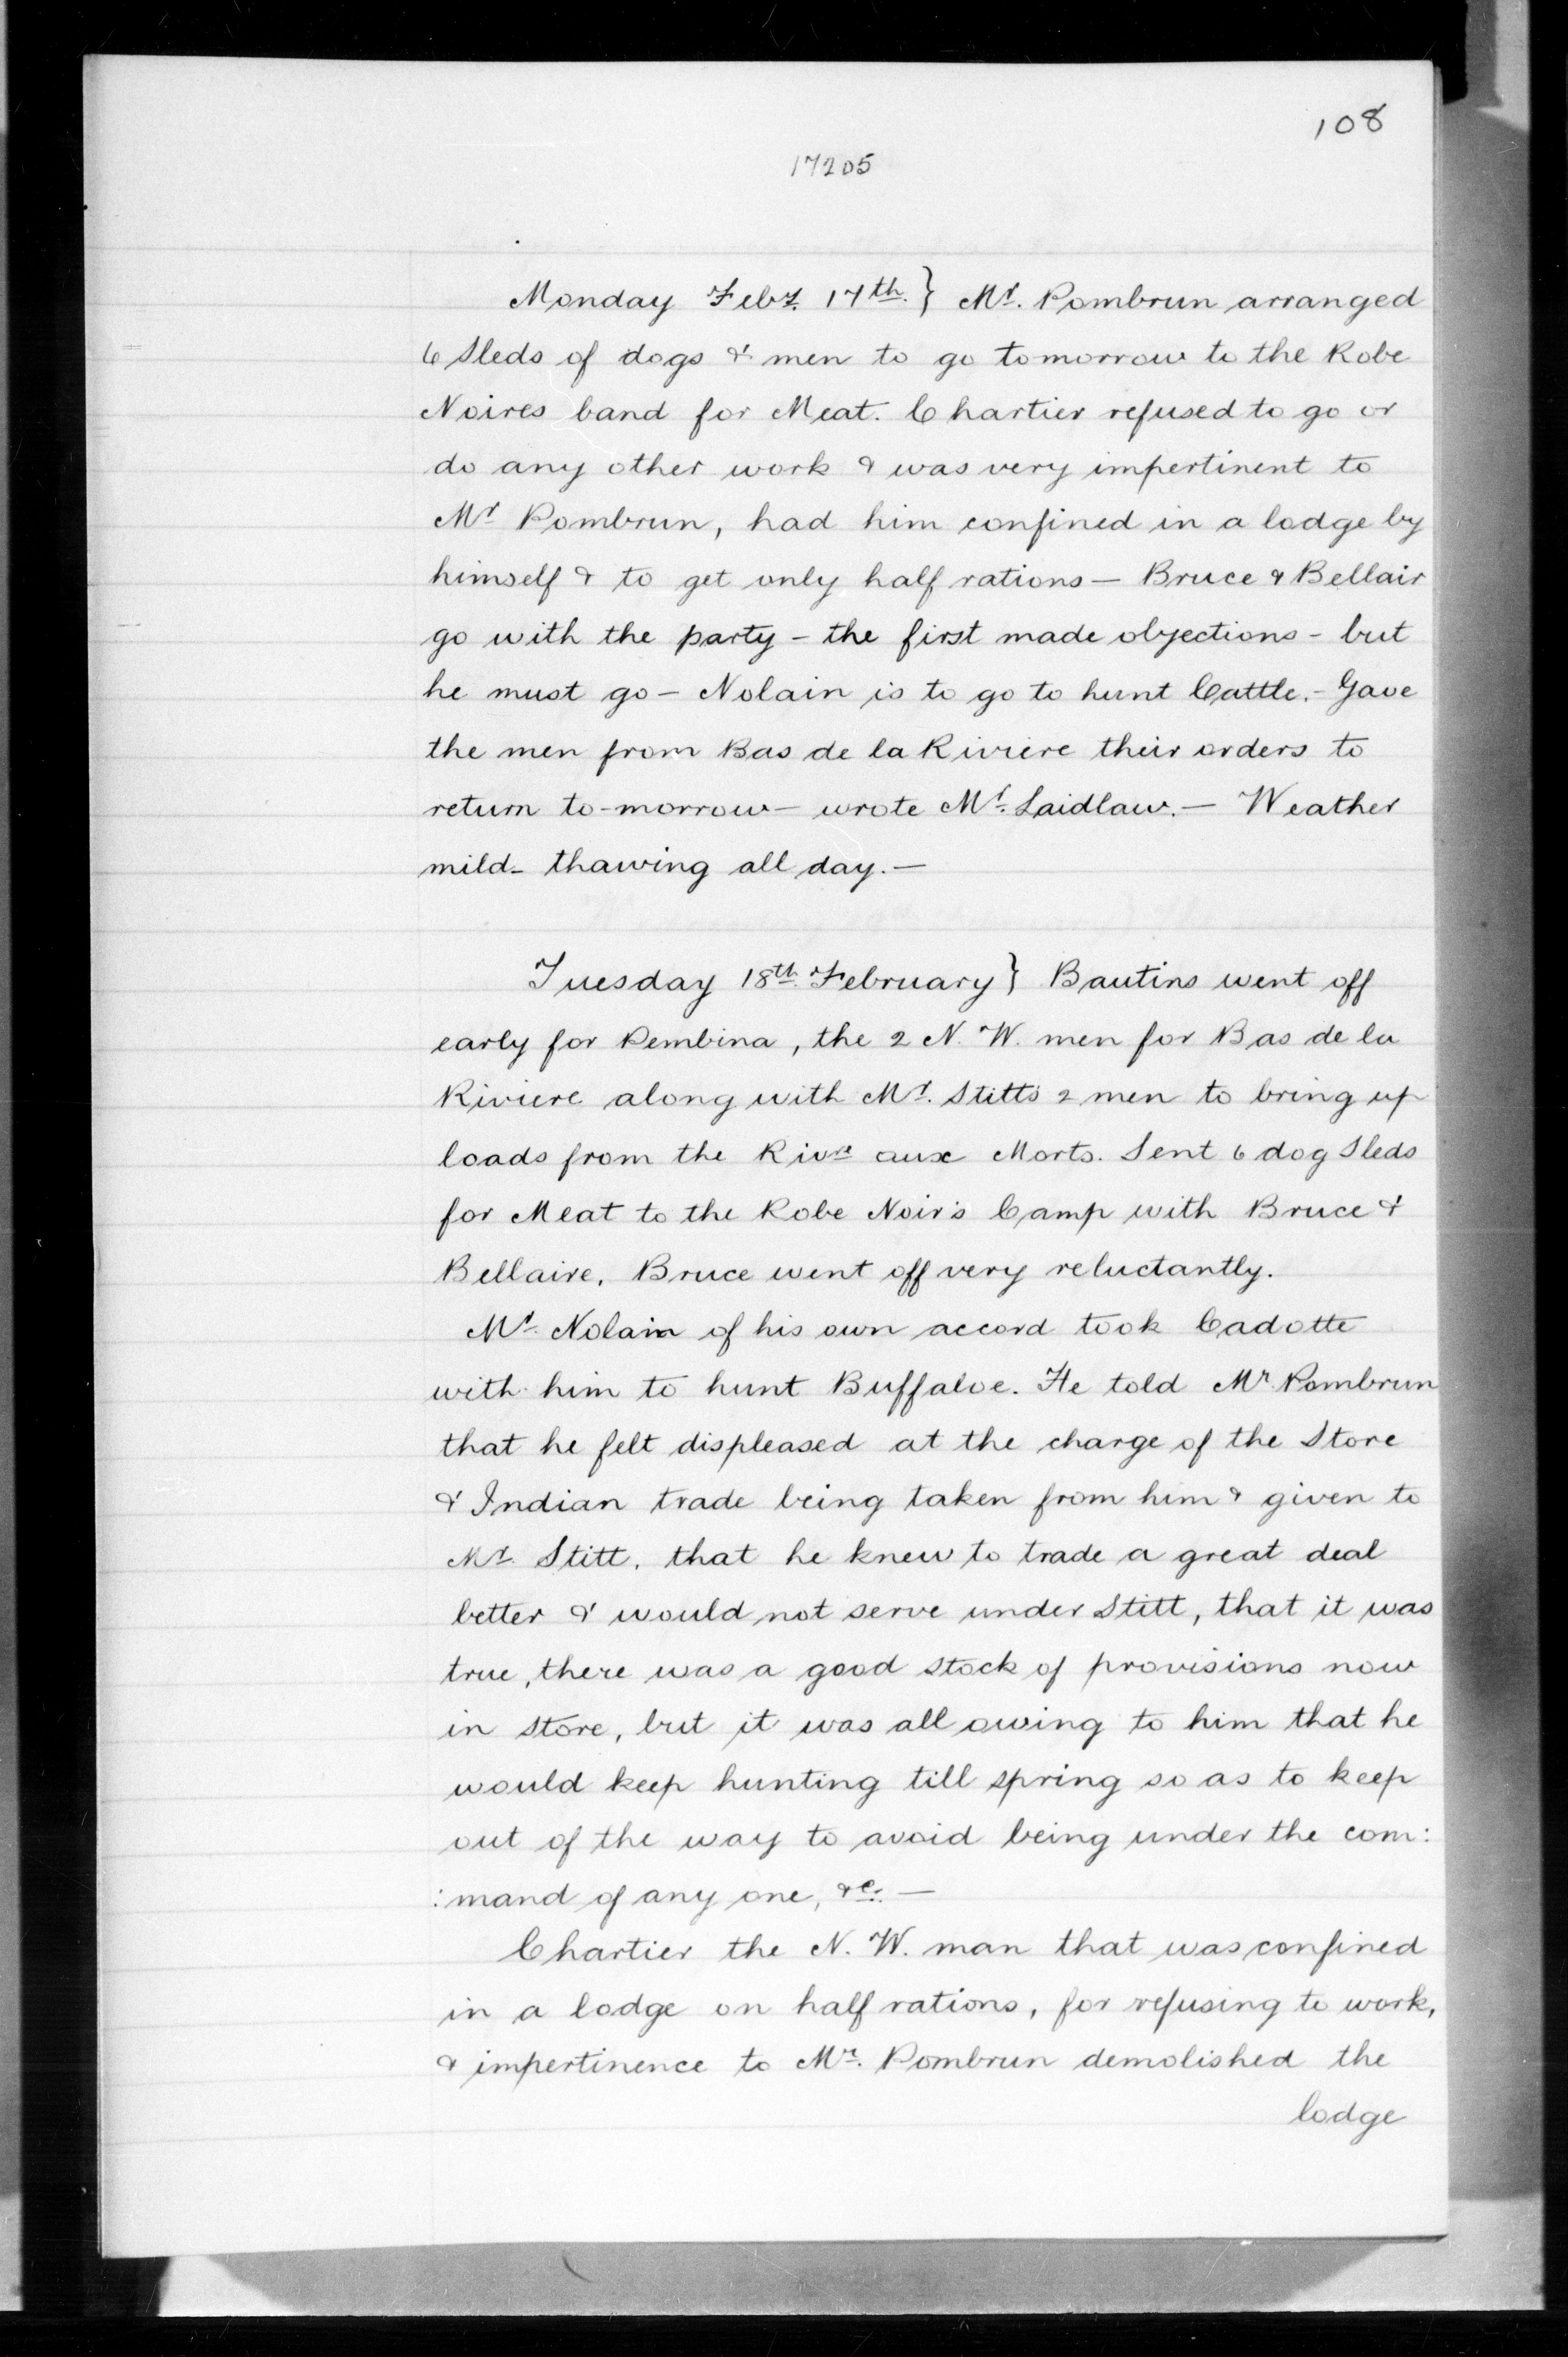 108
17205
Monday Feby. 17th. } Mr. Pombrun arranged
6 Sleds of dogs & men to go tomorrow to the Robe
Noires band for Meat. Chartier refused to go or
do any other work & was very impertinent to
Mr Pombrun, had him confined in a lodge by
himself & to get only half rations — Bruce & Bellair
go with the party - the first made objections - but
he must go — Nolain is to go to hunt Cattle. - Gave
the men from Bas de la Riviere their orders to
return to-morrow — wrote Mr. Laidlaw. — Weather
mild - thawing all day. —
Tuesday 18th. February } Bautins went off
early for Pembina, the 2 N. W. men for Bas de la
Riviere along with Mr. Stitt's 2 men to bring up
loads from the Rivre aux Morts. Sent 6 dog Sleds
for Meat to the Robe Noir's Camp with Bruce &
Bellaire. Bruce went off very reluctantly.
Mr. Nolain of his own accord took Cadotte
with him to hunt Buffaloe. He told Mr. Pombrun
that he felt displeased at the charge of the Store
& Indian trade being taken from him & given to
Mr. Stitt, that he knew to trade a great deal
better & would not serve under Stitt, that it was
true, there was a good stock of provisions now
in store, but it was all owing to him that he
would keep hunting till spring so as to keep
out of the way to avoid being under the com:
:mand of any one, &c. —
Chartier the N. W. man that was confined
in a lodge on half rations, for refusing to work,
& impertinence to Mr. Pombrun demolished the
lodge